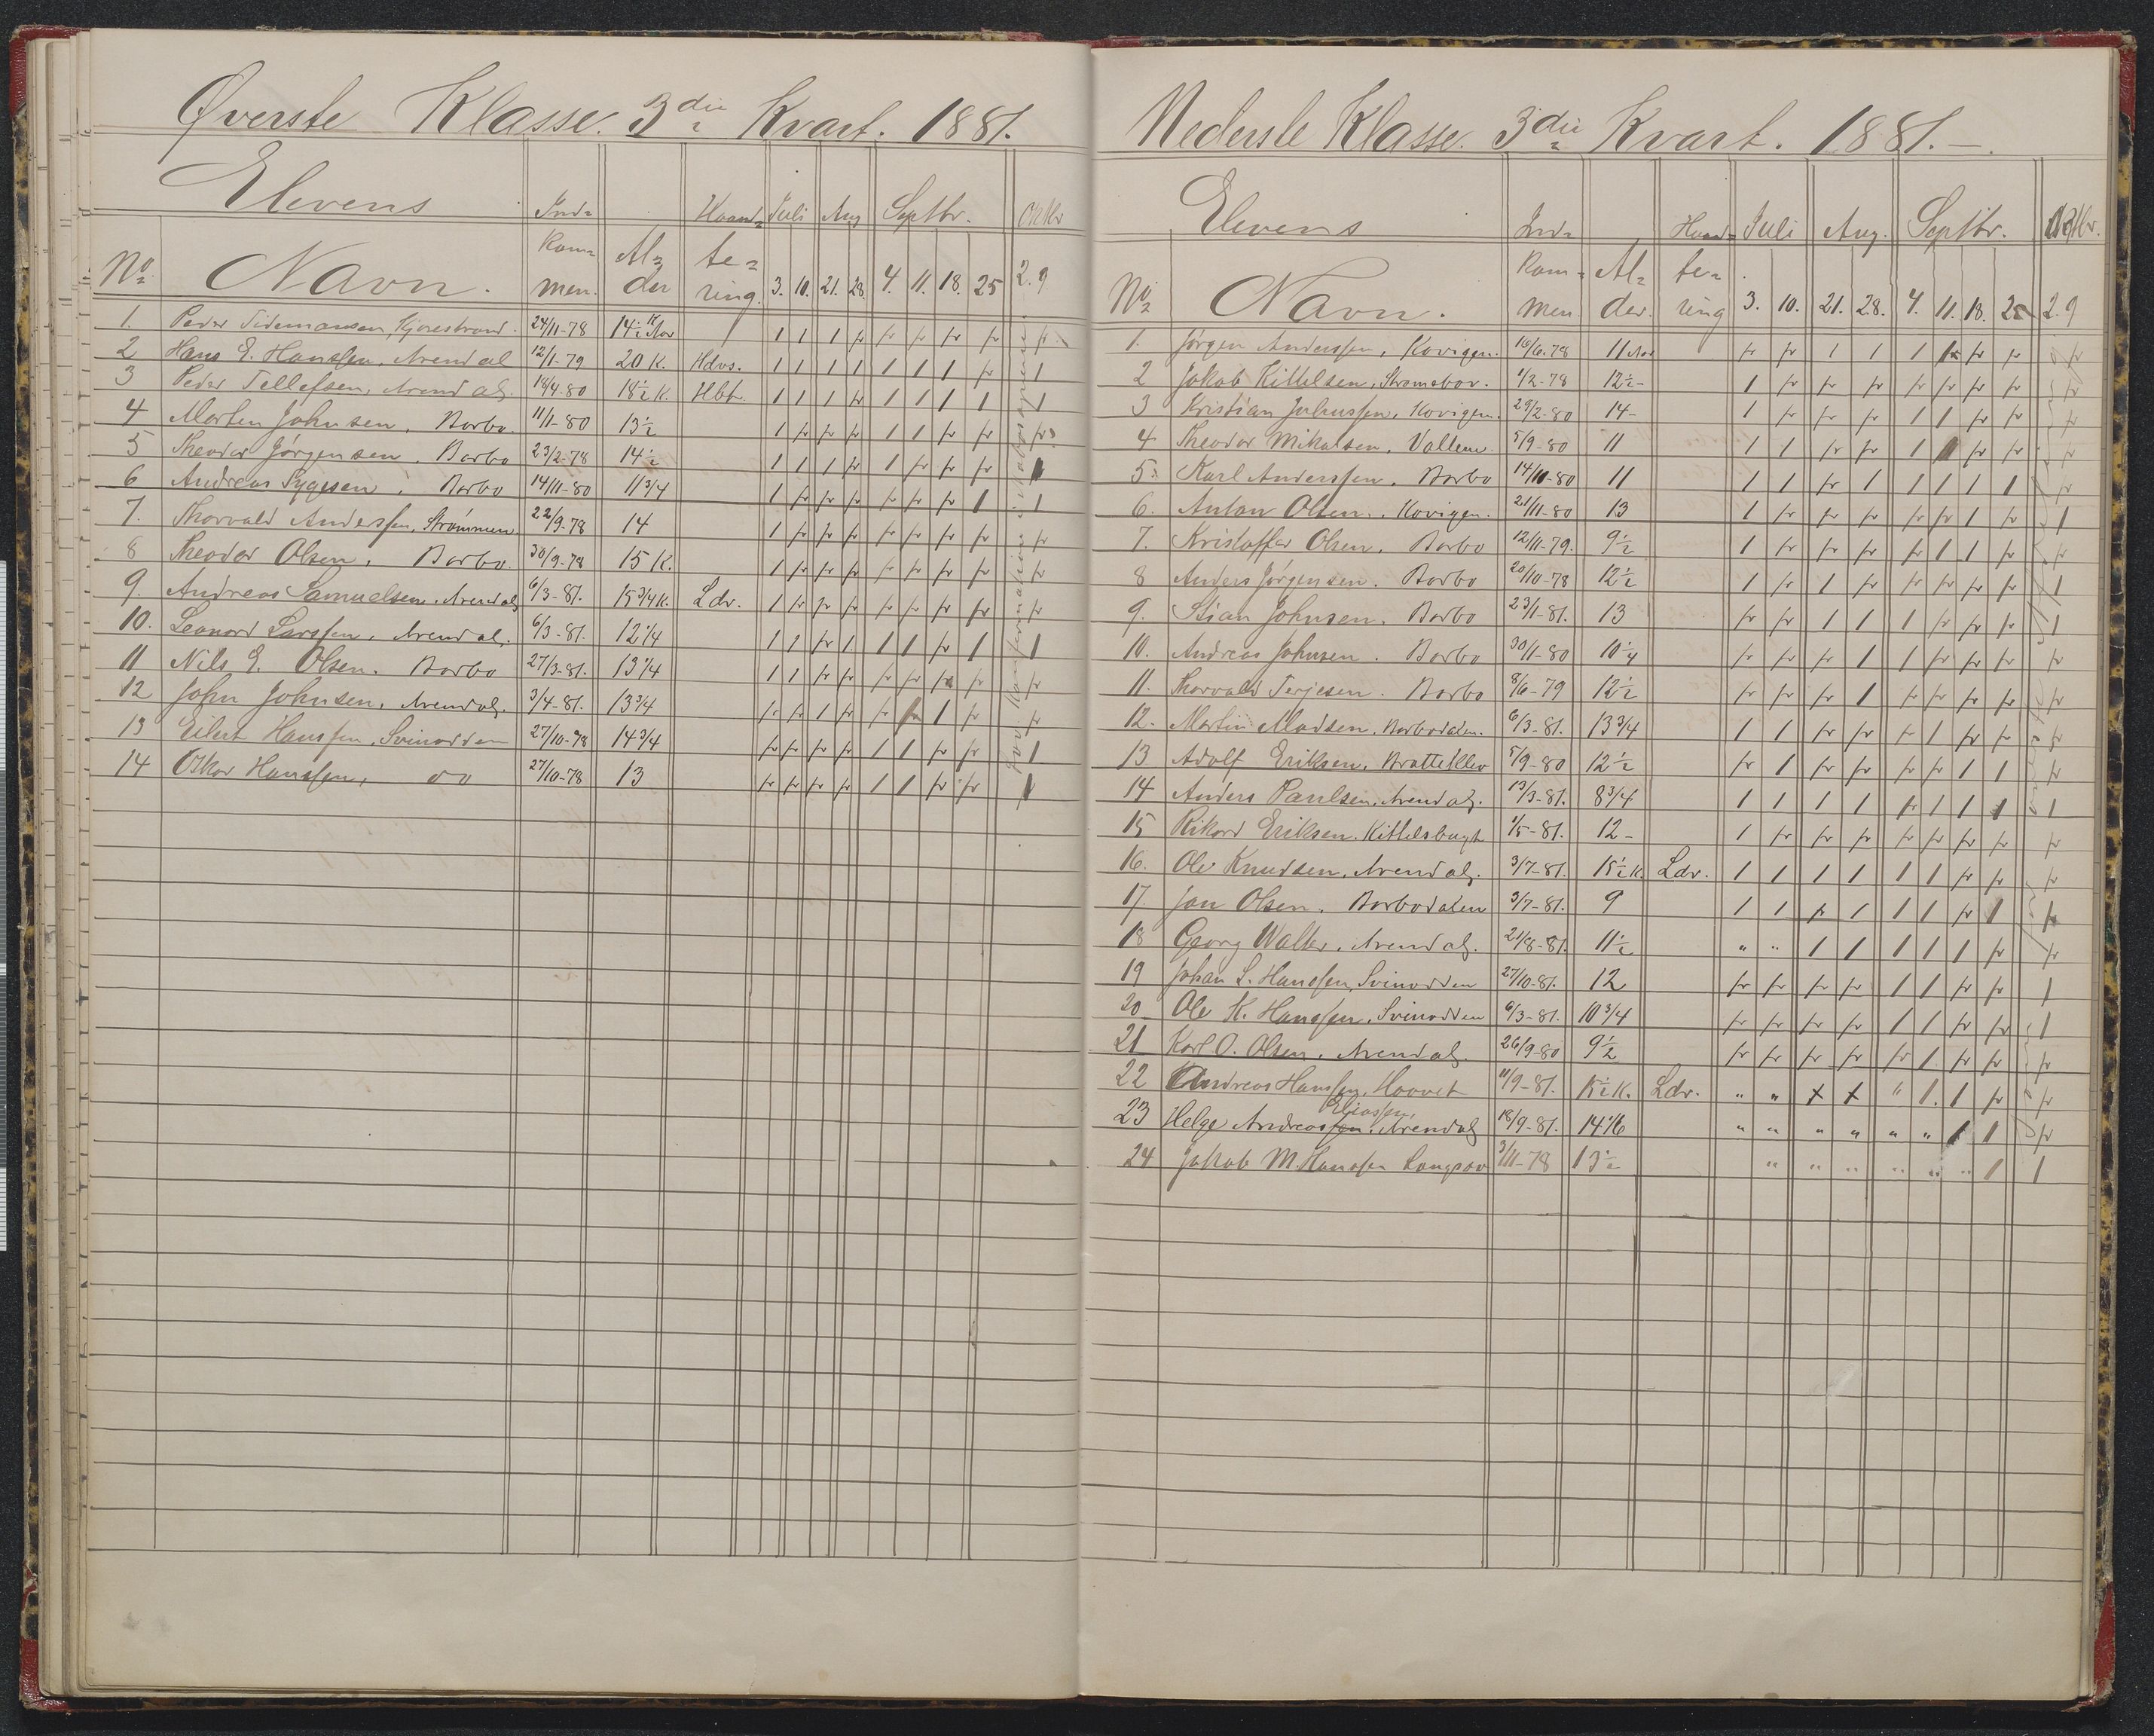 Øverste Klasse. 3die Kvart. 1881.
Elevens Ind= Haand= Juli Aug Septbr. Oktbr
No Navn. kom= men. Al= der te= ring. 3. 10. 21. 28. 4. 11. 18. 25 2. 9
1. Peder Tidemansen, 24/11-78 14½ 1 1 1 fr fr fr fr fr fr
2 Hans E. Hanssen, Arendal 12/1-79 20 K. Hdvs. 1 1 1 1 1 1 1 fr 1
3 Peder Tellefsen, Arendal. 18/4-80 18½ K. Hbt. 1 1 1 fr 1 1 1 1 1
4 Morten Johnsen, Barbo. 11/1-80 13½ 1 fr fr fr 1 1 fr fr fr
5 Theodor Jørgensen, Barbo 23/2-78 14½ 1 1 1 fr 1 fr fr fr 1
6 Andreas Barbo 14/11-80 11¾ 1 fr fr fr fr fr fr 1 1
7. Thorvald Anderssen, Strømmen 22/9-78 14 1 fr fr fr fr fr fr fr fr
8 Theodor Olsen, Barbo 30/9-78 15 K. 1 fr fr fr fr fr fr fr fr
9. Andreas Samuelsen, Arendal 6/3-81. 15¾ K. Ldr. 1 fr fr fr fr fr fr fr fr
10. Leonard Larssen, Arendal. 6/3-81. 12¼ 1 1 fr 1 1 1 fr 1 1
11 Nils E. Olsen. Barbo 27/3-81. 13¼ 1 1 fr fr fr fr fr fr fr
12 John Johnsen, Arendal. 3/4-81. 13¾ fr fr 1 fr fr fr 1 fr fr
13 Eilert Hanssen, Svinodden 27/10-78 14¾ fr fr fr fr 1 1 fr fr 1
14 Oskar Hanssen, do 27/10-78 13 fr fr fr fr 1 1 fr fr 1
Nederste Klasse. 3die Kvart. 1881.-
Elevens Ind= Haand= Juli Aug. Septbr. Oktbr.
No Navn. kom= men Al= der. te= ring 3. 10. 21. 28. 4. 11. 18. 25 2 9
1. Jørgen Anderssen, Kovigen. 16/6-78 11 Aar fr fr 1 1 1 1 fr fr fr
2 Jakob Kittelsen, Strømsbo. 1/2-78 12½- 1 fr fr fr fr fr fr fr fr
3 Kristian Juliussen, Kovigen. 29/2-80 14- 1 fr fr fr 1 1 fr fr fr
4 Theodor Mikalsen, Vallene 5/9-80 11 1 1 fr fr 1 1 fr fr fr
5 Karl Anderssen, Barbo 14/11-80 11 1 1 fr 1 1 1 1 1 fr
6. Anton Olsen, Kovigen. 21/11-80 13 1 fr fr fr fr fr 1 fr 1
7. Kristoffer Olsen, Barbo 12/11-79. 9½ 1 fr fr fr fr 1 1 fr fr
8 Anders Jørgensen. Barbo 20/10-78 12½ 1 fr 1 fr fr fr fr fr 1
9. Stian Johnsen. Barbo 23/1-81. 13 fr fr 1 1 1 fr fr fr 1
10. Andreas Johnsen. Barbo 30/11-80 10¼ fr fr fr 1 1 fr fr fr fr
11. Thorvald Terjesen. Barbo 8/6-79 12½ fr fr fr 1 fr fr fr fr fr
12. Martin Madsen, Barbodalen. 6/3-81. 13¾ 1 1 fr fr fr 1 fr fr fr
13 Adolf Eriksen, Bratteklev 5/9-80 12½ fr 1 fr fr fr fr 1 1 fr
14 Anders Paulsen, Arendal. 13/3-81. 8¾ 1 1 1 1 fr 1 1 1 1
15 Rikard Eriksen, Kittelsbugt 1/5-81. 12- 1 fr fr fr fr fr fr fr fr
16. Ole Knudsen, Arendal. 3/7-81. 15½ K. Ldr. 1 1 1 1 1 1 fr fr fr
17. Jan Olsen, Barbodalen 3/7-81. 9 1 1 fr 1 1 1 fr 1 1
18 Georg Walter, Arendal. 21/8-81. 11½ " " 1 1 1 1 1 fr fr
19 Johan L. Hanssen, Svinodden 27/10-81. 12 fr fr fr fr 1 1 fr fr 1
20 Ole K. Hanssen, Svinodden 6/3-81. 10¾ fr fr fr fr 1 1 fr fr 1
21 Karl O. Olsen, Arendal. 26/9-80 9½ fr fr fr fr fr 1 fr fr fr
22 Andreas Hanssen, 11/9-81. 15½ K. Ldr. " " x x " 1. 1 fr fr
Eliassen,
23 Helge Andreassen, Arendal 18/9-81. 14 1/6 " " " " " " 1 1 fr
24 Jakob M. Hanssen 3/11-78 13½ " " " " " " 1 1